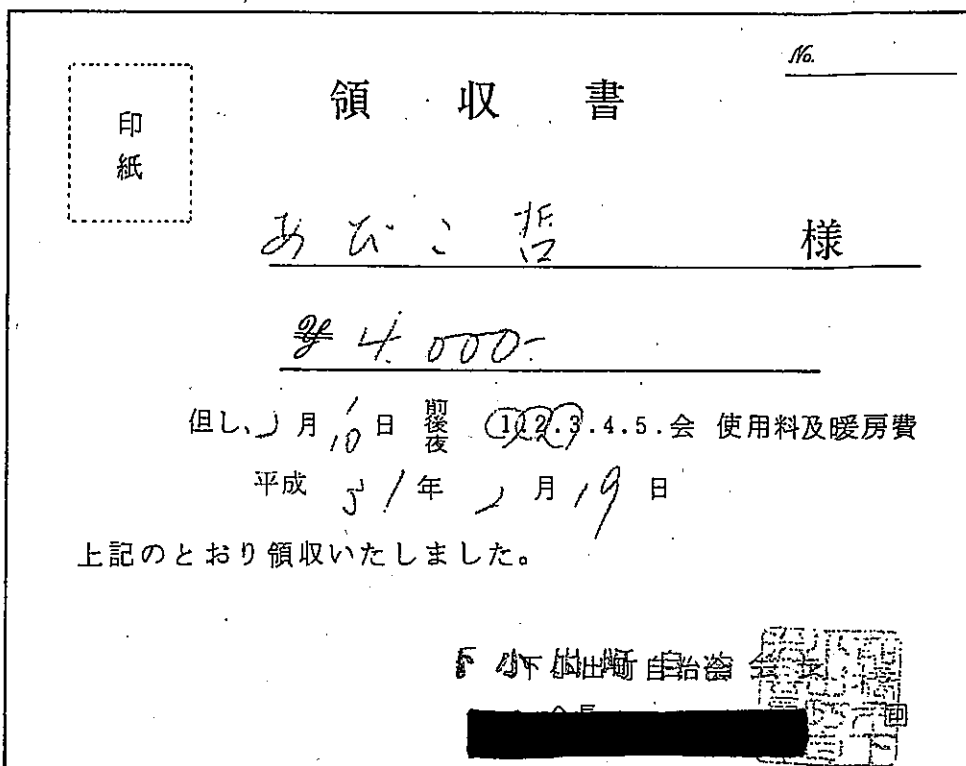 No.
印紙
領収書
あびこ哲 様
¥4,000-
但し、2月10日 前後夜 1.2.3.4.5.会 使用料及暖房費
平成31年2月19日
上記のとおり領収いたしました。
自治会
会長
印